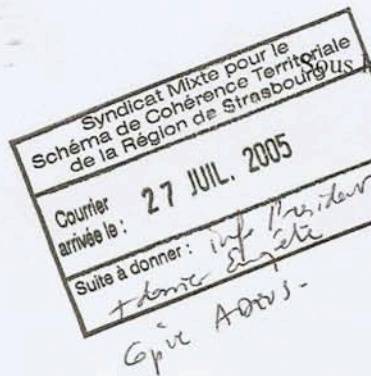 Sous
Syndicat Mixte pour le
Schéma de Cohérence Territoriale
de la Région de Strasbourg
Courrier
arrivée le : 27 JUIL. 2005
Suite à donner : info President
+ dossier Enquête
Copie ADEUS-